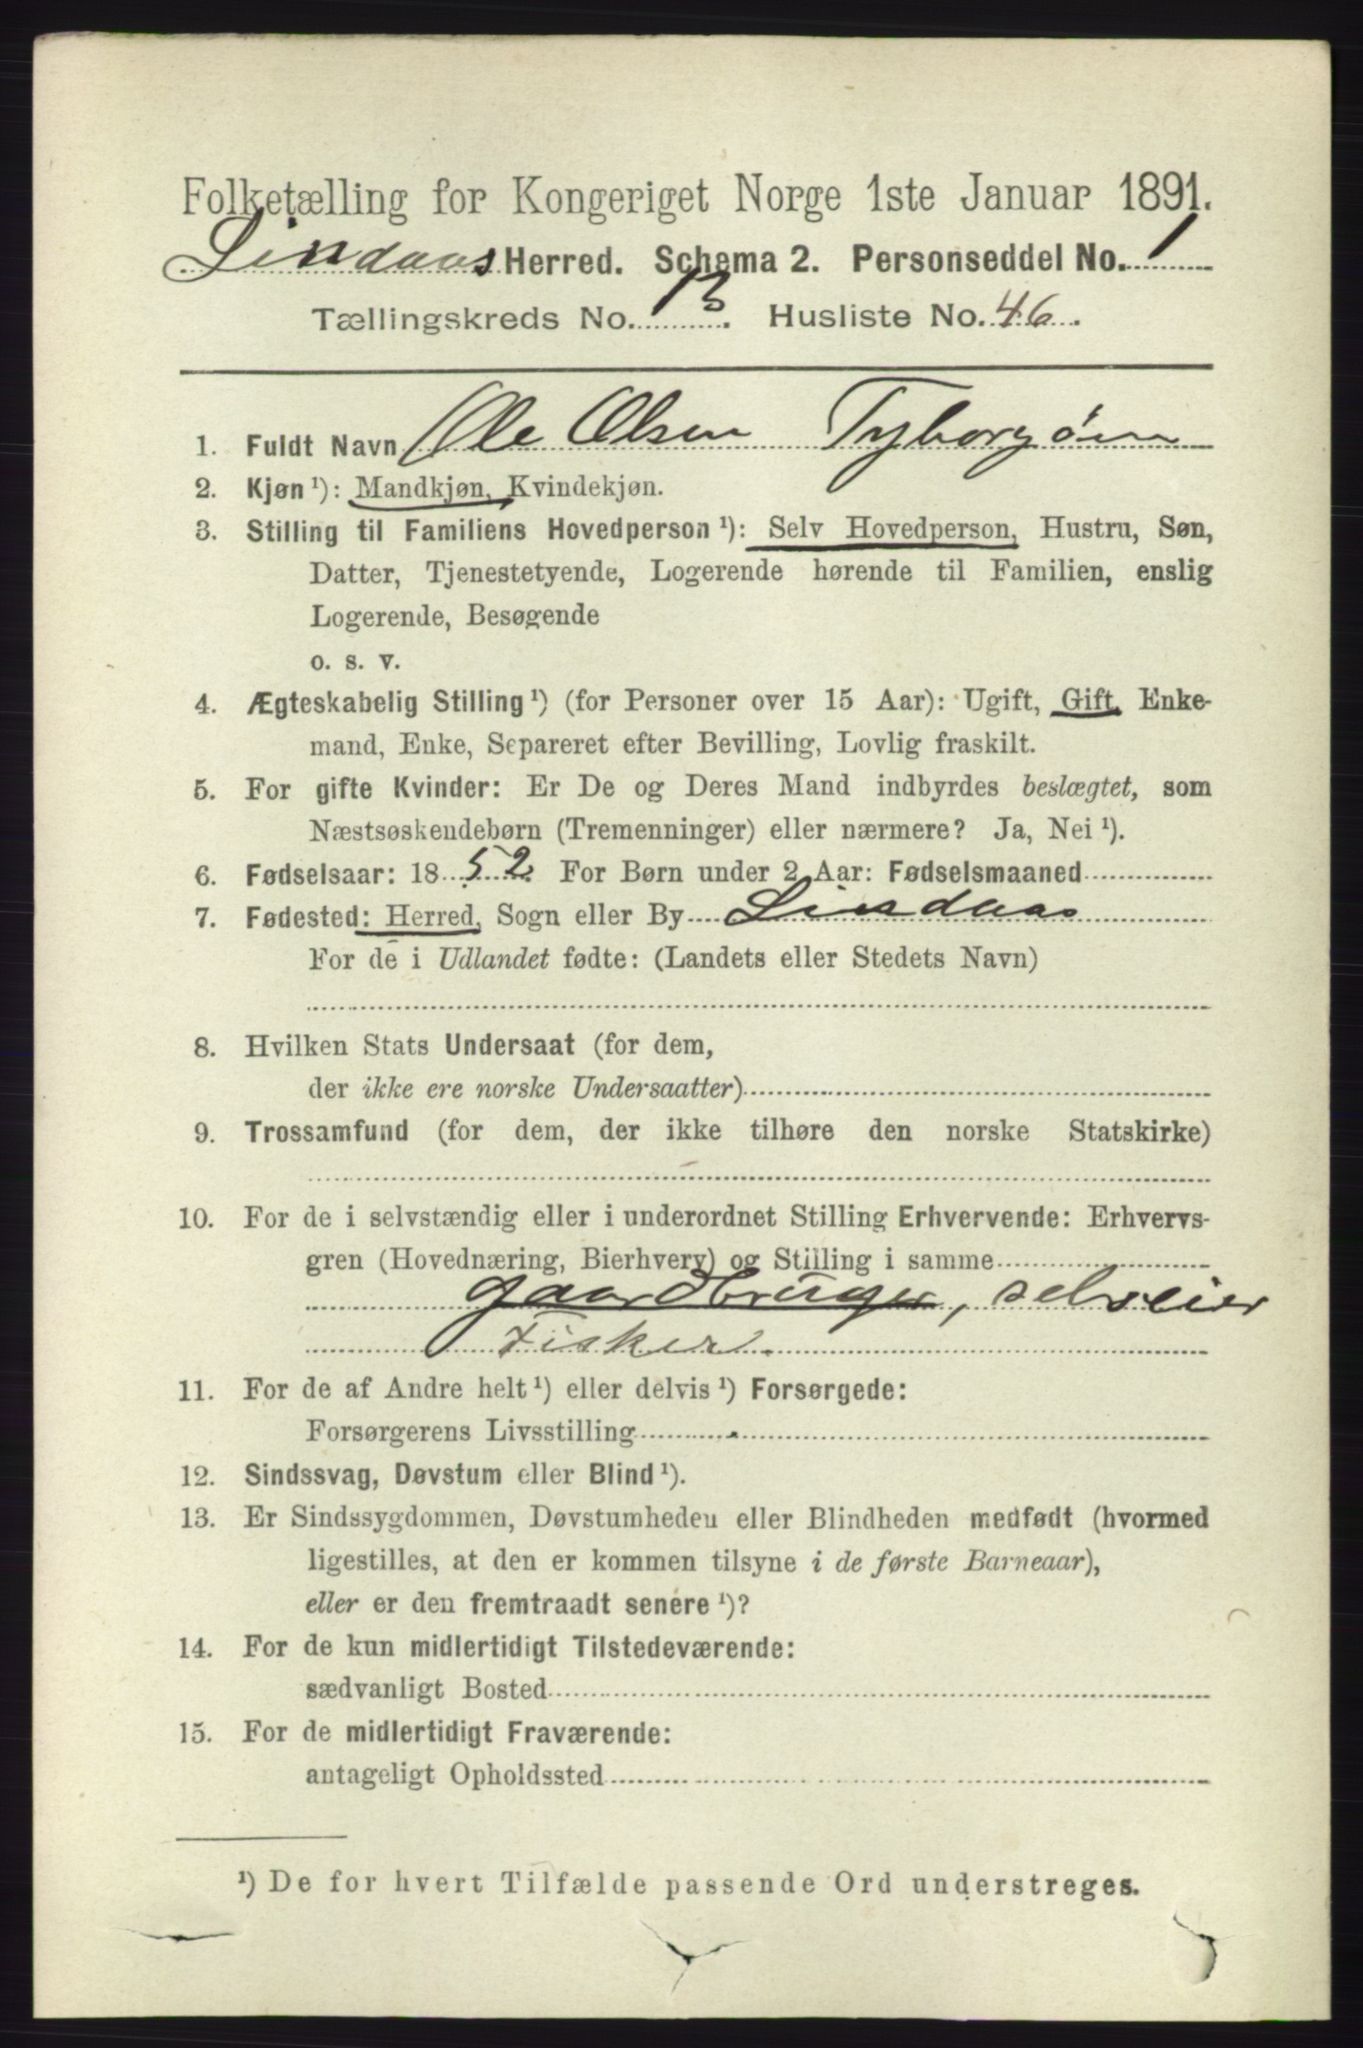 Folketælling for Kongeriget Norge 1ste Januar 1891.
Lindaas Herred. Schema 2. Personseddel No. 1
Tællingskreds No. 13. Husliste No. 46.
1. Fuldt Navn Ole Olsen Tyborgøen
2. Kjøn ¹): Mandkjøn, Kvindekjøn.
3. Stilling til Familiens Hovedperson ¹): Selv Hovedperson, Hustru, Søn,
Datter, Tjenestetyende, Logerende hørende til Familien, enslig
Logerende, Besøgende
o. s. v.
4. Ægteskabelig Stilling ¹) (for Personer over 15 Aar): Ugift, Gift, Enke-
mand, Enke, Separeret efter Bevilling, Lovlig fraskilt.
5. For gifte Kvinder: Er De og Deres Mand indbyrdes beslægtet, som
Næstsøskendebørn (Tremenninger) eller nærmere? Ja, Nei ¹).
6. Fødselsaar: 1852 For Børn under 2 Aar: Fødselsmaaned
7. Fødested: Herred, Sogn eller By Lindaas
For de i Udlandet fødte: (Landets eller Stedets Navn)
8. Hvilken Stats Undersaat (for dem,
der ikke ere norske Undersaatter)
9. Trossamfund (for dem, der ikke tilhøre den norske Statskirke)
10. For de i selvstændig eller i underordnet Stilling Erhvervende: Erhvervs-
gren (Hovednæring, Bierhverv) og Stilling i samme
gaardbruger, selveier
Fisker.
11. For de af Andre helt ¹) eller delvis ¹) Forsørgede:
Forsørgerens Livsstilling
12. Sindssvag, Døvstum eller Blind ¹).
13. Er Sindssygdommen, Døvstumheden eller Blindheden medfødt (hvormed
ligestilles, at den er kommen tilsyne i de første Barneaar),
eller er den fremtraadt senere ¹)?
14. For de kun midlertidigt Tilstedeværende:
sædvanligt Bosted
15. For de midlertidigt Fraværende:
antageligt Opholdssted
¹) De for hvert Tilfælde passende Ord understreges.